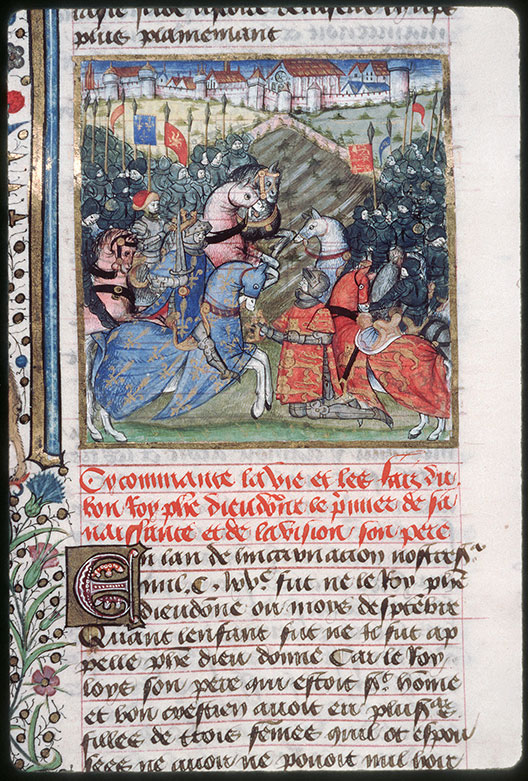 plus plainement
Cy commance la vie et les faiz du
bon Roy phe dieudonne le premier de sa
naissance et de la vision son pere
En lan de lincarnacion nostre sr
mil. C. lxvc fut ne le Roy phe
dieudone ou moys de septembre
Quant lenfant fut ne il fut ap
pelle phe dieu donne Car le Roy
loys son pere qui estoit st homme
et bon crestien avoit eu plusrs
filles de trois femes quil ot espou
sees ne avoir ne povoit nul hoir